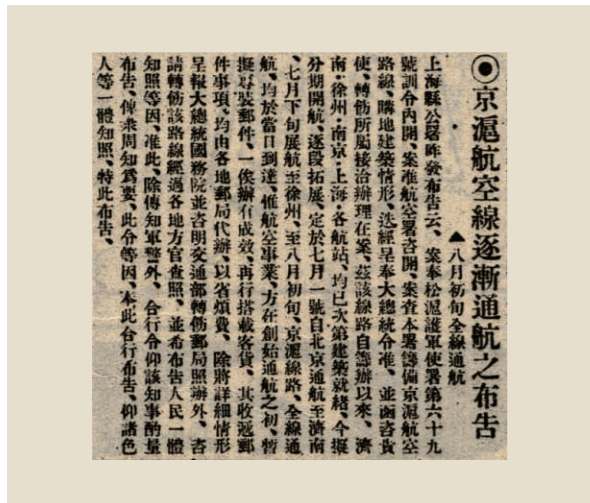 ◉京滬航空線逐漸通航之布告
▲八月初旬全線通航
上海縣公署昨發布告云、案奉松滬護軍使署第六十九
號訓令內開、案准航空署咨開、案查本署籌備京滬航空
路線、購地建築情形、迭經呈奉大總統令准、並函咨貴
使、轉飭所屬接洽辦理在案、茲該線路自籌辦以來、濟
南·徐州·南京·上海·各航站、均已次第建築就緒、今擬
分期開航、逐段拓展、定於七月一號自北京通航至濟南
、七月下旬展航至徐州、至八月初旬、京滬線路、全線通
航、均於當日到達、惟航空事業、方在創始通航之初、暫
擬專裝郵件、一俟辦有成效、再行搭載客貨、其收遞郵
件事項、均由各地郵局代辦、以省煩費、除將詳細情形
呈報大總統國務院並咨明交通部轉飭郵局照辦外、咨
請轉飭該路線經過各地方官查照、並希布告人民一體
知照等因、准此、除傳知軍警外、合行令仰該知事酌量
布告、俾衆周知爲要、此令等因、奉此合行布告、仰諸色
人等一體知照、特此布告、